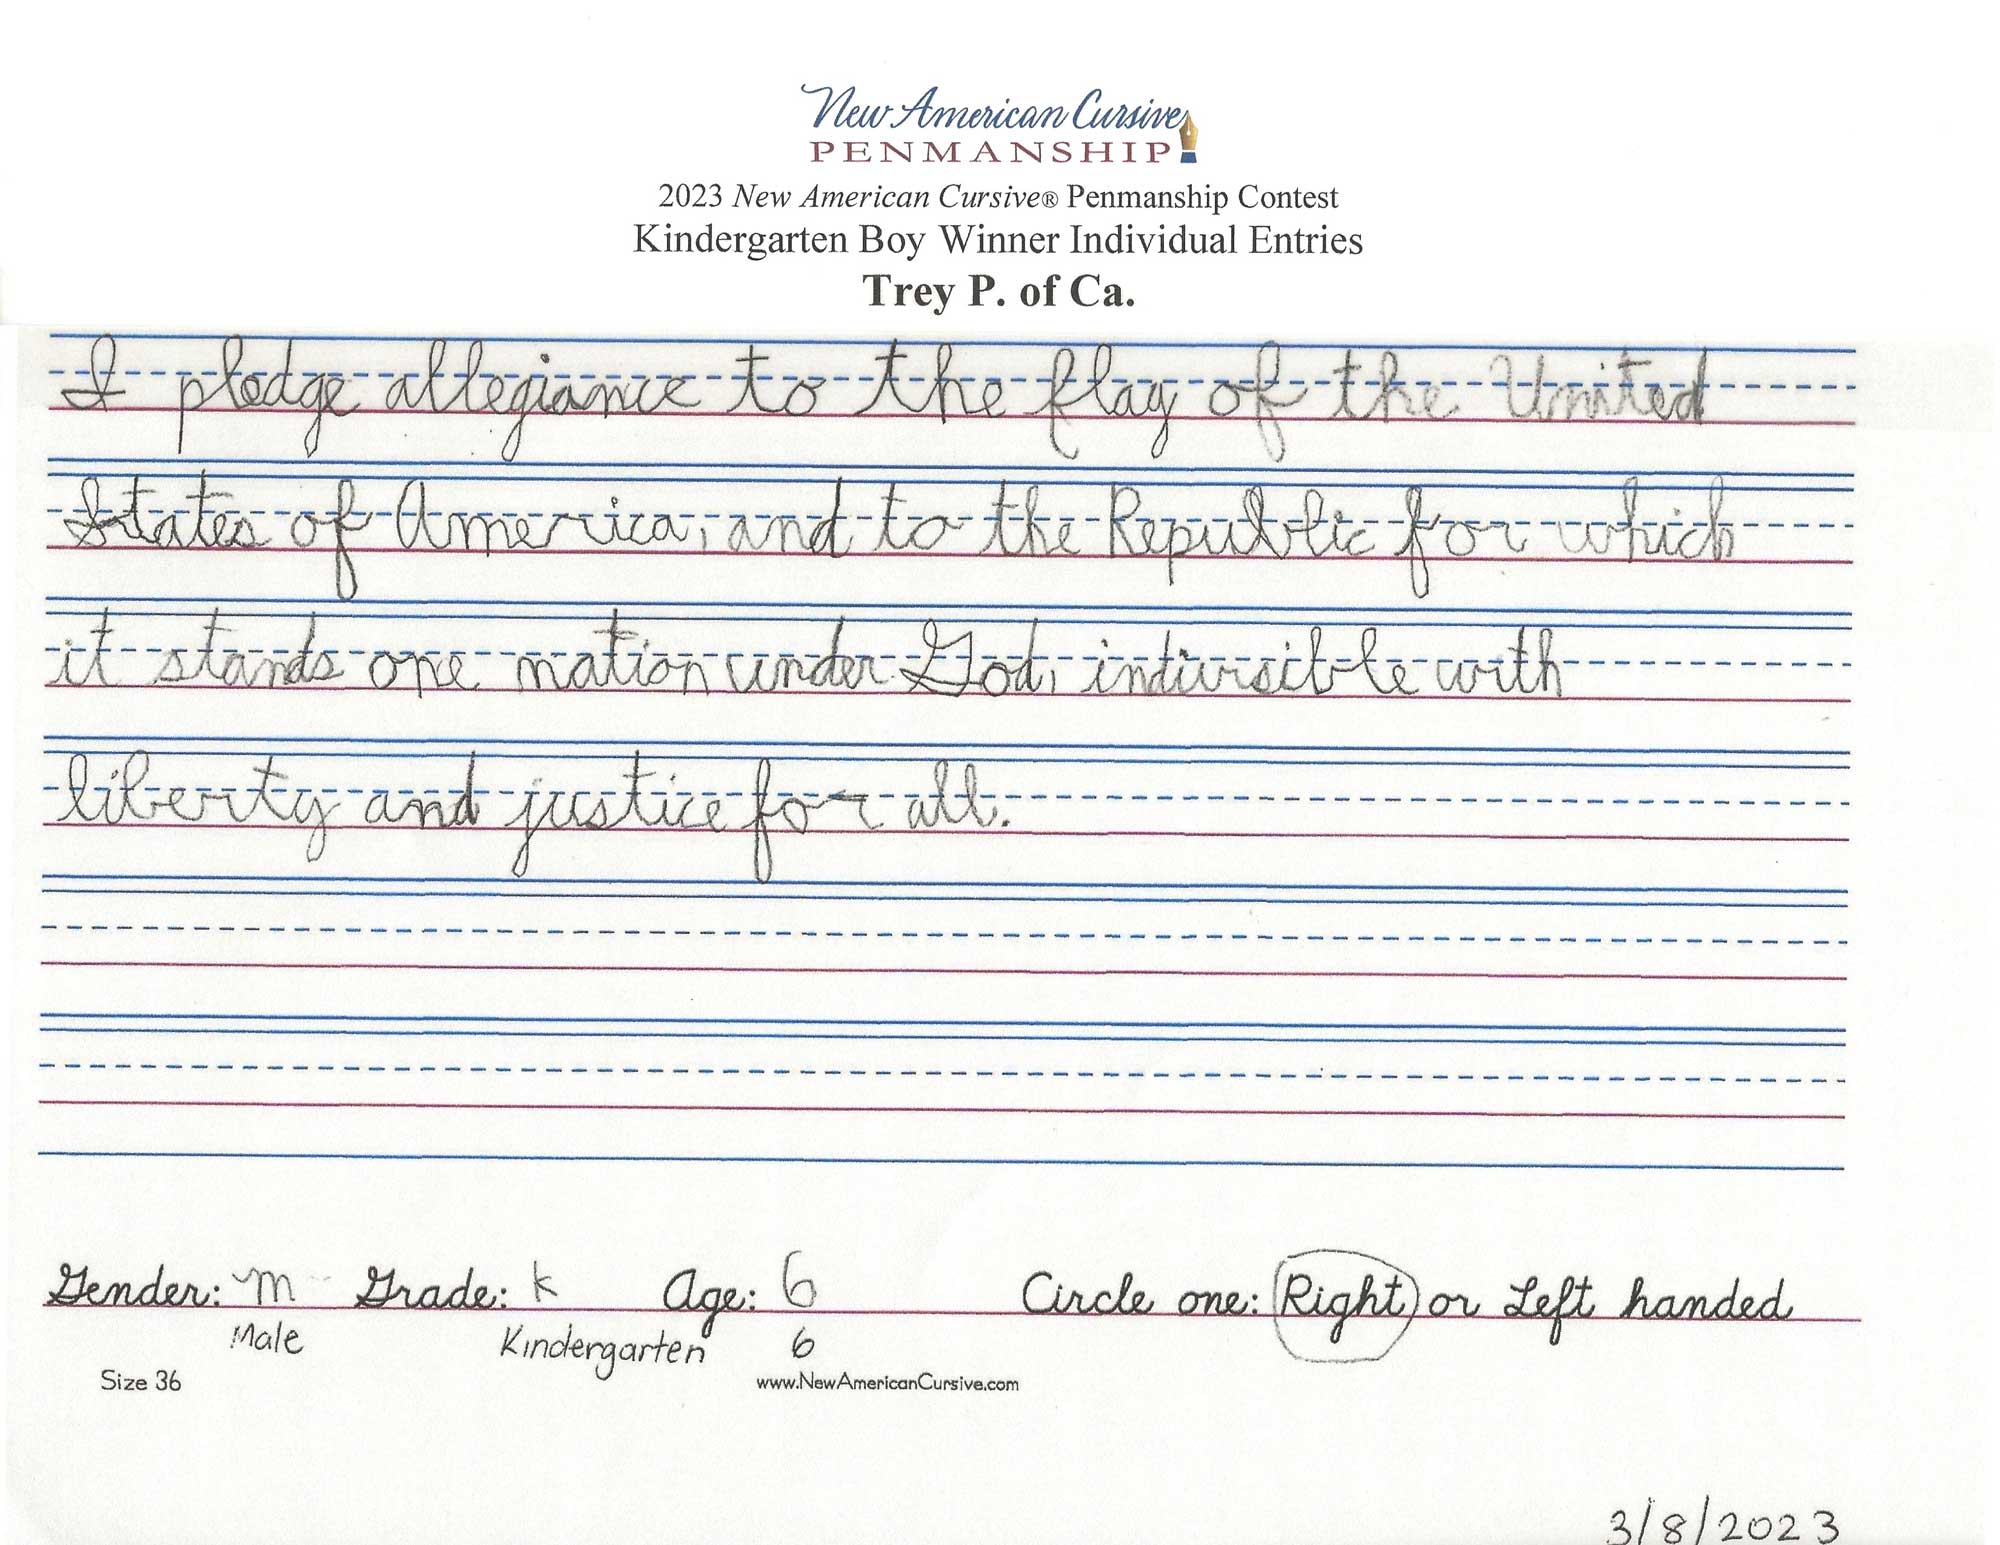 New American Cursive
PENMANSHIP
2023 New American Cursive® Penmanship Contest
Kindergarten Boy Winner Individual Entries
Trey P. of Ca.
I pledge allegiance to the flag of the United
States of America, and to the Republic for which
it stands one nation under God, indivisible with
liberty and justice for all.
Gender: m Grade: k Age: 6 Circle one: Right or Left handed
Male Kindergarten 6
Size 36 www.NewAmericanCursive.com
3/8/2023